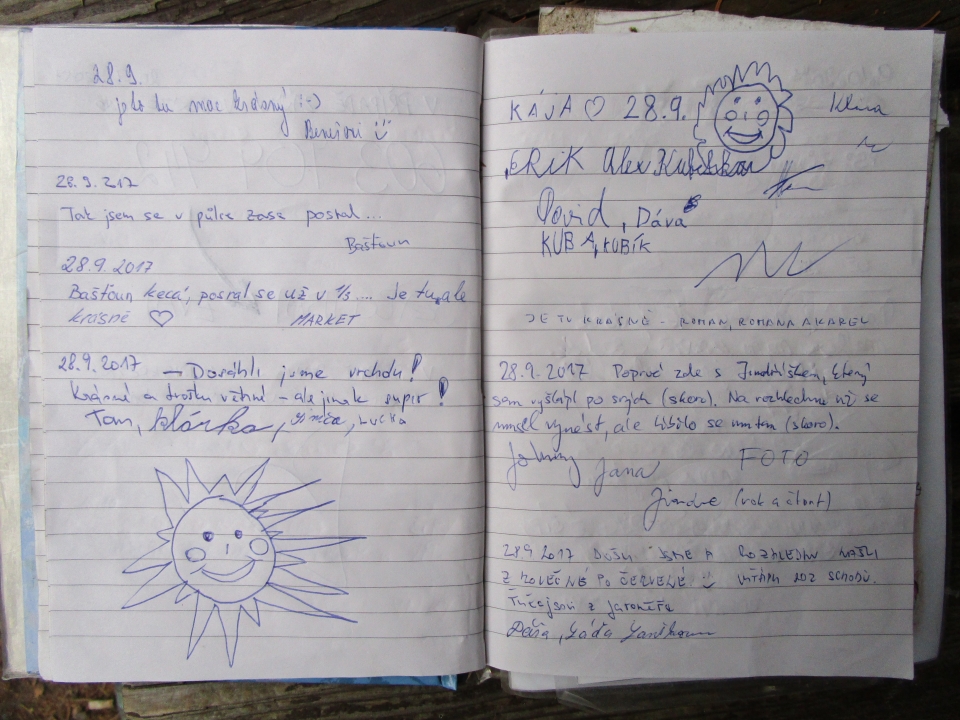 28.9.
je to tu moc krásný :-)
Benešovi
28.9.2017
Tak jsem se v půlce zase posral...
Baštoun
28.9.2017
Baštoun kecá, posral se už v 1/3.... Je tu, ale
krásně ♡ MARKET
28.9.2017 — Dosáhli jsme vrcholu!
Krásné a trošku větrné – ale jinak supr!
Tom, Klárka, Jiřča, Lucka
KÁJA ♡ 28.9. Klára
ERIK Alex
David, Dáva
KUBA, KUBÍK
JE TU KRÁSNĚ – ROMAN, ROMANA A KAREL
28.9.2017 Poprvé zde s Jindříškem, který
sem vyšlápl po svých (skoro). Na rozhlednu už se
musel vynést, ale líbilo se mu tam (skoro).
Johny Jana FOTO
Jindra (rok a čtvrt)
28.9 2017 DOŠLI JSME A ROZHLEDNU NAŠLI
Z NOVÉ PO ČERVENÉ VÍTÁM 102 SCHODŮ.
z Jaroměře
Páťa, Láďa